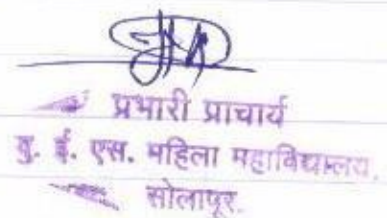 प्रभारी प्राचार्य
यु. ई. एस. महिला महाविद्यालय.
सोलापूर.